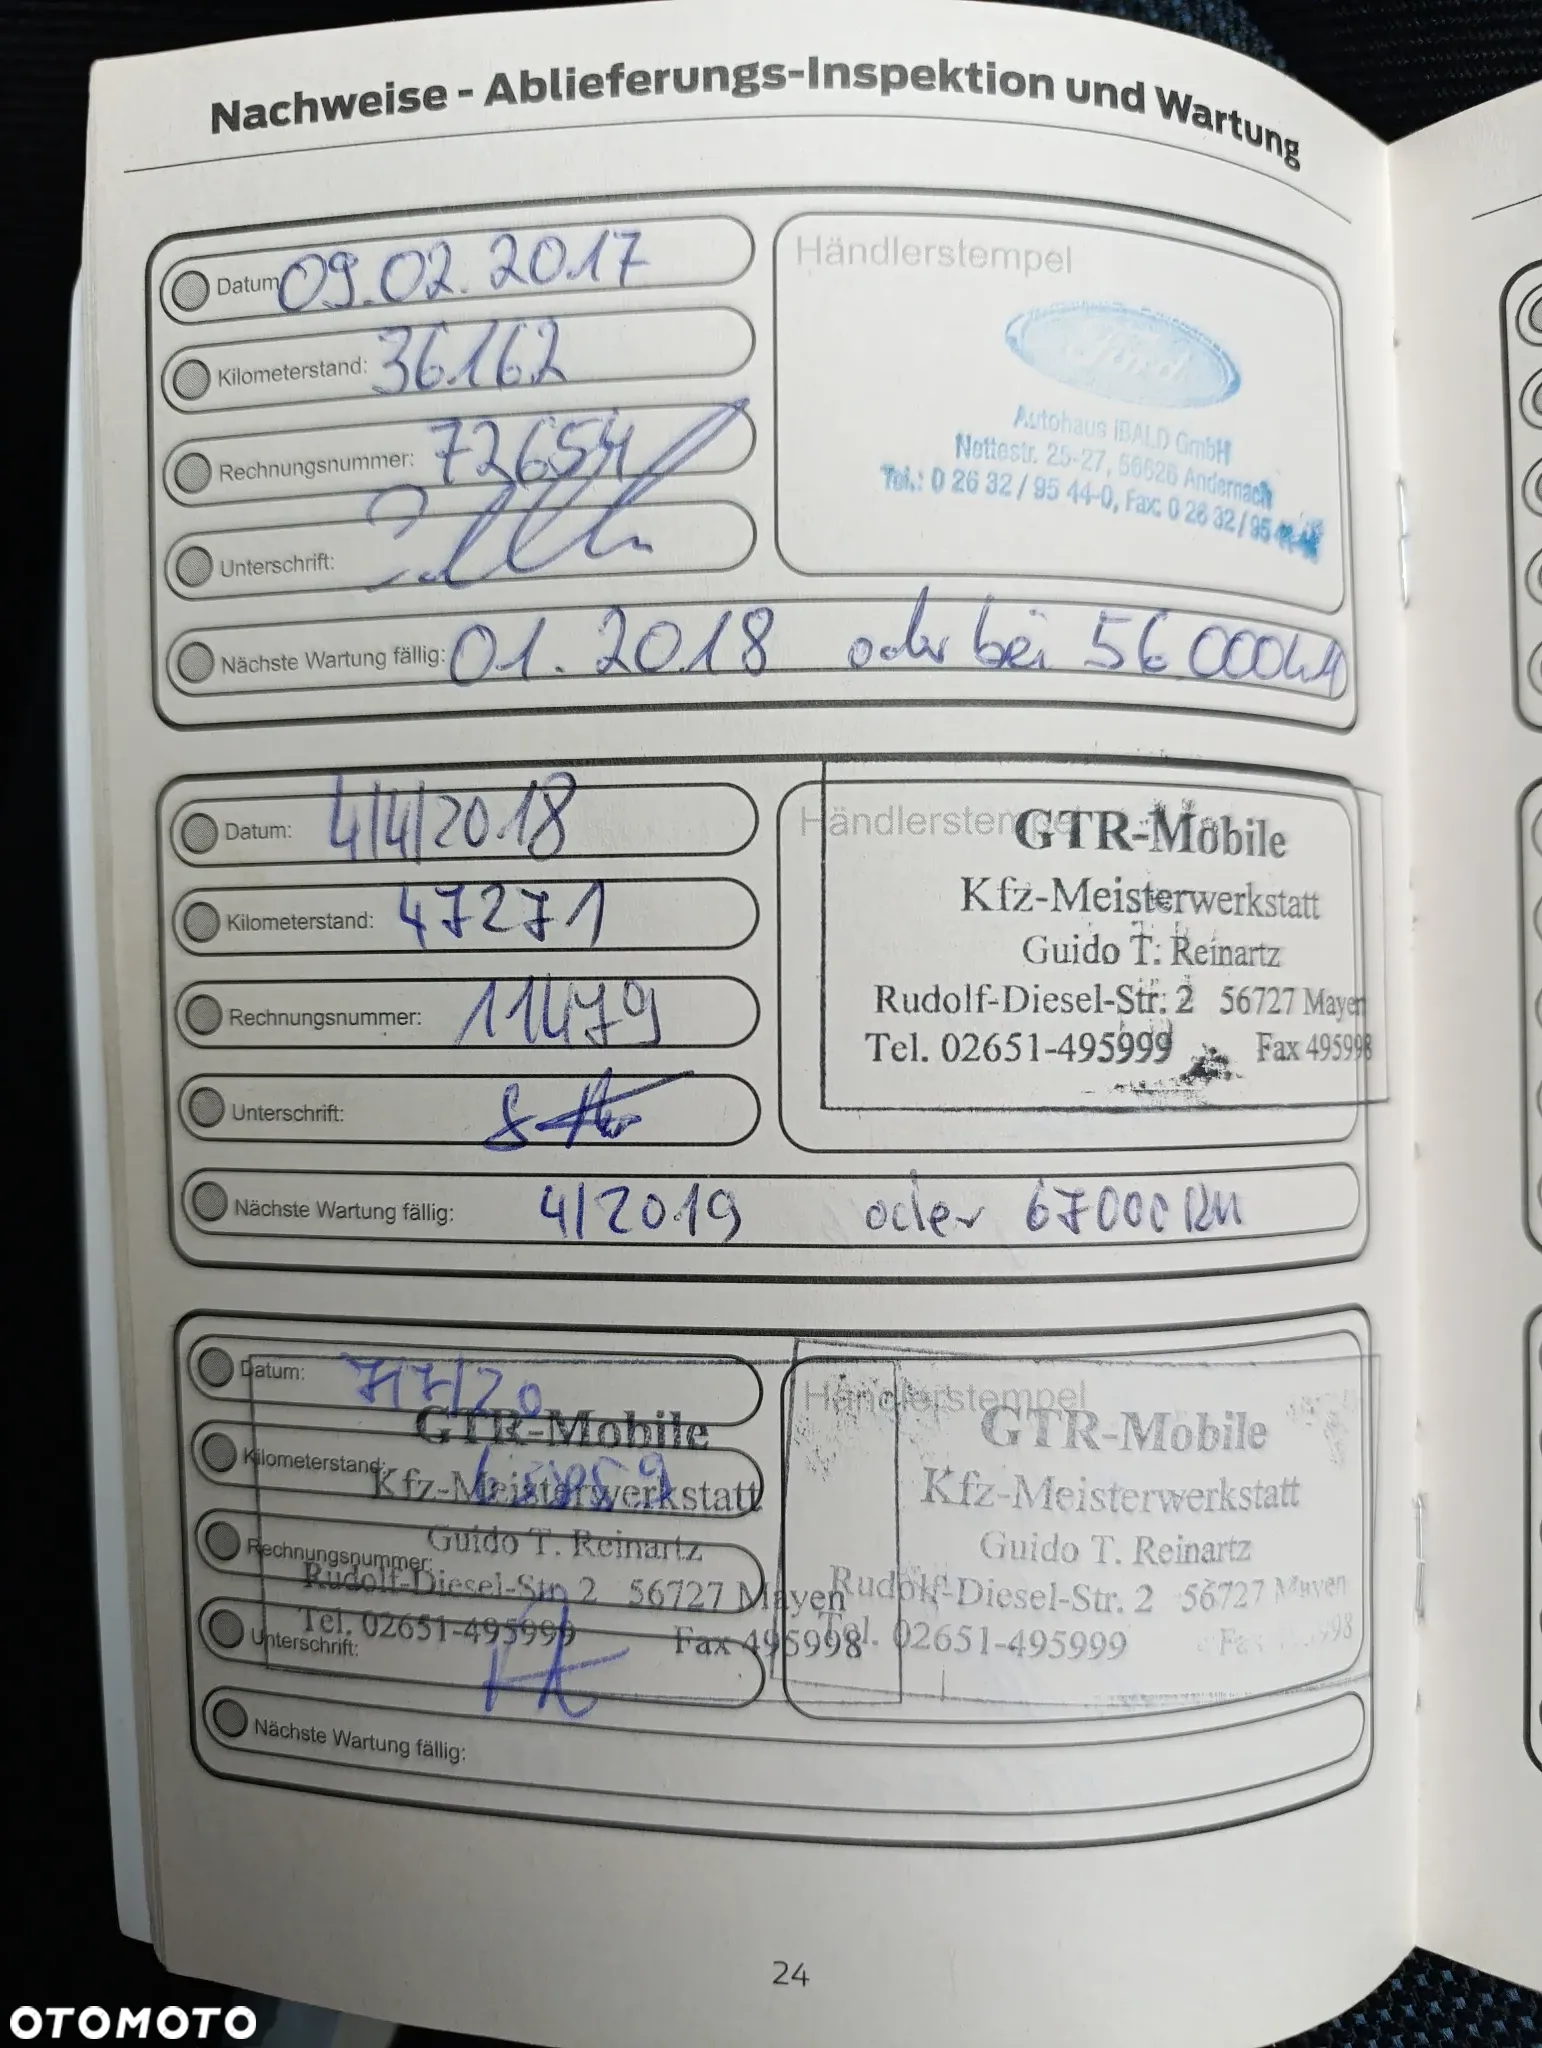 Nachweise - Ablieferungs-Inspektion und Wartung
Datum 09.02.2017
Kilometerstand: 36162
Rechnungsnummer: 72654
Unterschrift:
Nächste Wartung fällig: 01.2018 oder bei 56000km
Händlerstempel
Ford
Autohaus IBALD GmbH
Nettestr. 25-27, 56626 Andernach
Tel.: 0 26 32 / 95 44-0, Fax: 0 26 32 / 95
Datum: 4/4/2018
Kilometerstand: 47271
Rechnungsnummer: 11479
Unterschrift:
Nächste Wartung fällig: 4/2019 oder 67000 km
Händlerstempel
GTR-Mobile
Kfz-Meisterwerkstatt
Guido T. Reinartz
Rudolf-Diesel-Str. 2 56727 Mayen
Tel. 02651-495999 Fax 495998
Datum: 7/7/20
Kilometerstand:
Rechnungsnummer:
Unterschrift:
Nächste Wartung fällig:
GTR-Mobile
Kfz-Meisterwerkstatt
Guido T. Reinartz
Rudolf-Diesel-Str. 2 56727 Mayen
Tel. 02651-495999 Fax 495998
Händlerstempel
GTR-Mobile
Kfz-Meisterwerkstatt
Guido T. Reinartz
Rudolf-Diesel-Str. 2 56727 Mayen
Tel. 02651-495999 Fax
24
OTOMOTO